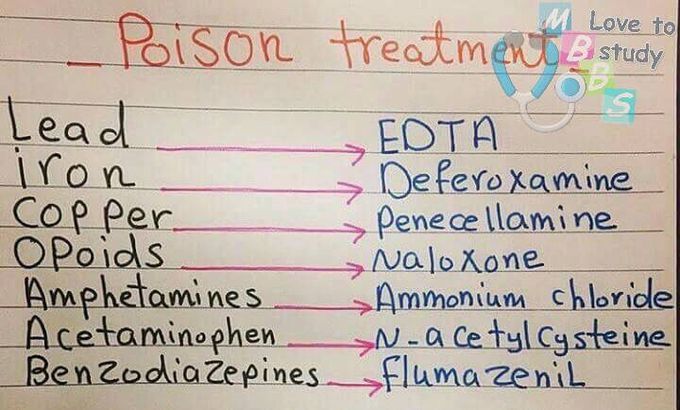 _ Poison treatment _
Love to
study
MBBS
Lead → EDTA
iron → Deferoxamine
Copper → Penecellamine
Opoids → Naloxone
Amphetamines → Ammonium chloride
Acetaminophen → N-acetylcysteine
Benzodiazepines → flumazenil